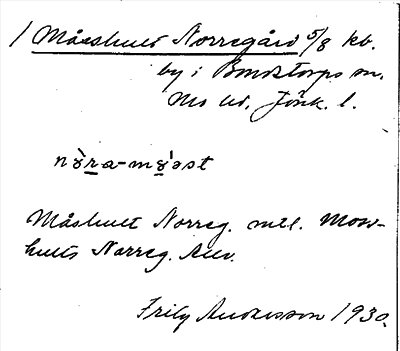 1 Måshult Norregård 5/8 kb.
by i Bondstorps sn.
Mo hd, Jönk. l.
nɤ̀ra-mɤ́əst
Måshult Norreg. mtl. Mows-
hults Norreg. Allv.
Fritz Andersson 1930.